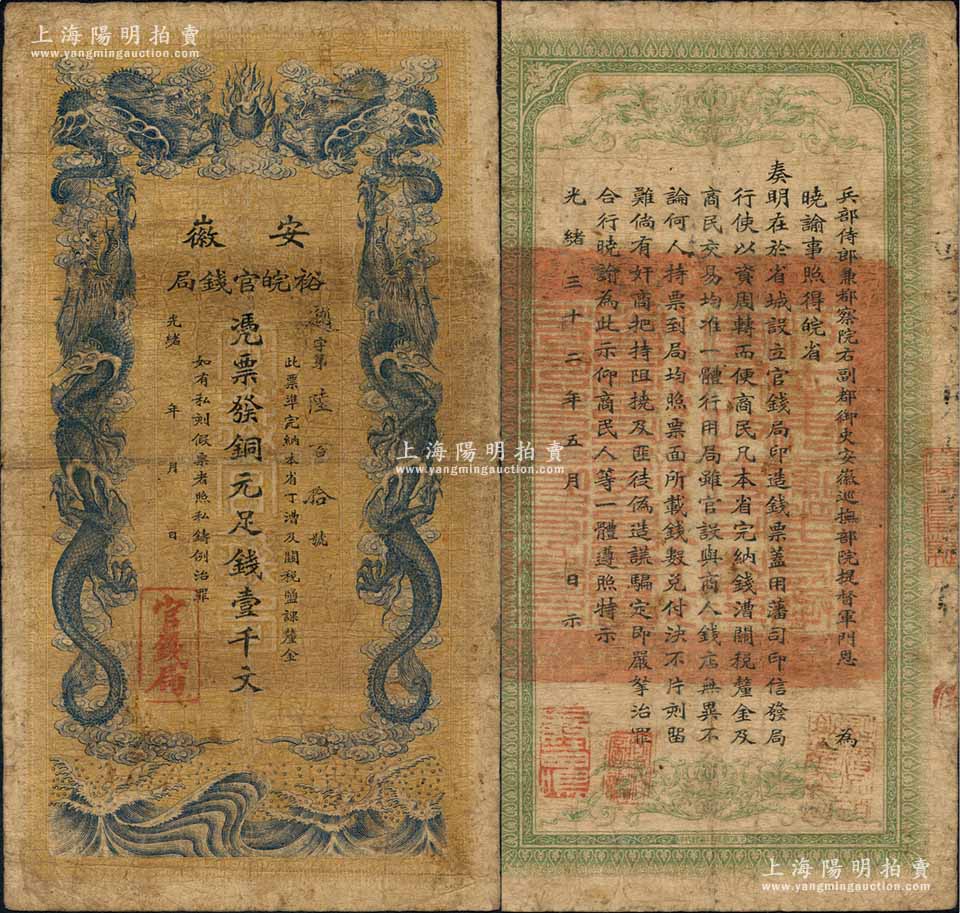 上海陽明拍賣
www.yangmingauction.com
安徽
裕皖官錢局
字第陸百拾號
此票準完納本省丁漕及關稅鹽課釐金
憑票發銅元足錢壹千文
如有私刻假票者照私鑄例治罪
光緒 年 月 日
官錢局
上海陽明拍賣
www.yangmingauction.com
兵部侍郎兼都察院右副都御史安徽巡撫部院提督軍門恩 為
曉諭事照得皖省
奏明在於省城設立官錢局印造錢票蓋用藩司印信發局
行使以資周轉而便商民凡本省完納錢漕關稅釐金及
商民交易均准一體行用局雖官設與商人錢店無異不
論何人持票到局均照票面所載錢數兌付決不片刻留
難倘有奸商把持阻撓及匪徒偽造謊騙定即嚴拏治罪
合行曉諭為此示仰商民人等一體遵照特示
光緒三十二年五月 日示
上海陽明拍賣
www.yangmingauction.com